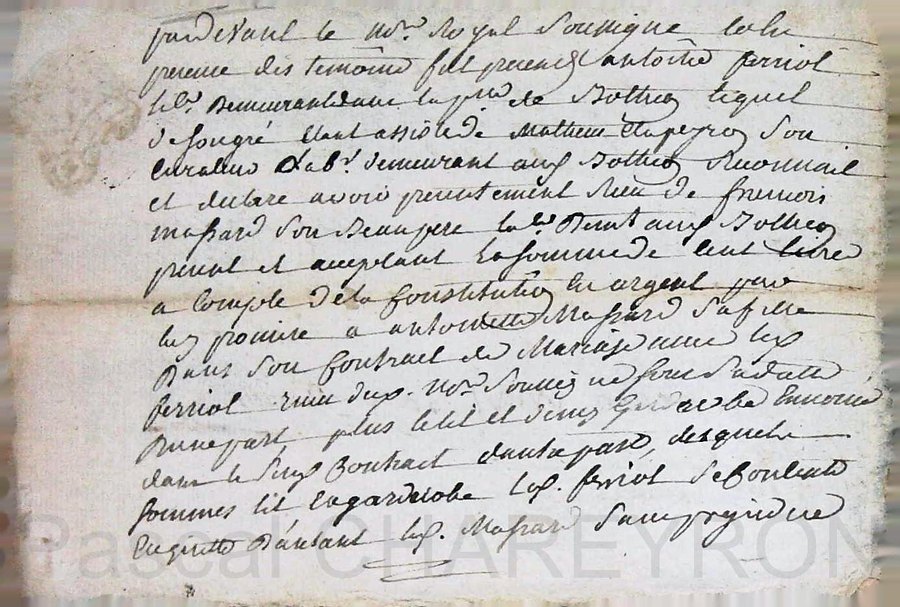 pardevant le no.re Royal Soussigné et en
presence des temoins fut present antoine ferriol
lab.r demeurant dans la p.sse de Bothéo lequel
de son gré etant assisté de Mathieu Chapeyro Son
curateur lab.r demeurant aus.t Bothéo Reconnait
et declare avoir presentement Receu de francois
massard Son Beaupere lab.r Demt aus.t Bothéo
present et acceptant la somme de cent livres
a compte de la constitution en argent par
luy promise a antoinette Massard Sa fille
Dans Son Contract de Mariage avec led.
ferriol receu dud. no.re Soussigné Sous Sa datte
D'une part plus le lit et garderobe Enoncé
dans le Sus.d Contract d'autre part, desquels
Sommes lit et garderobe led. ferriol Se Contente
En quitte D'autant led. Massard Sans prejudice
Pascal CHAREYRON